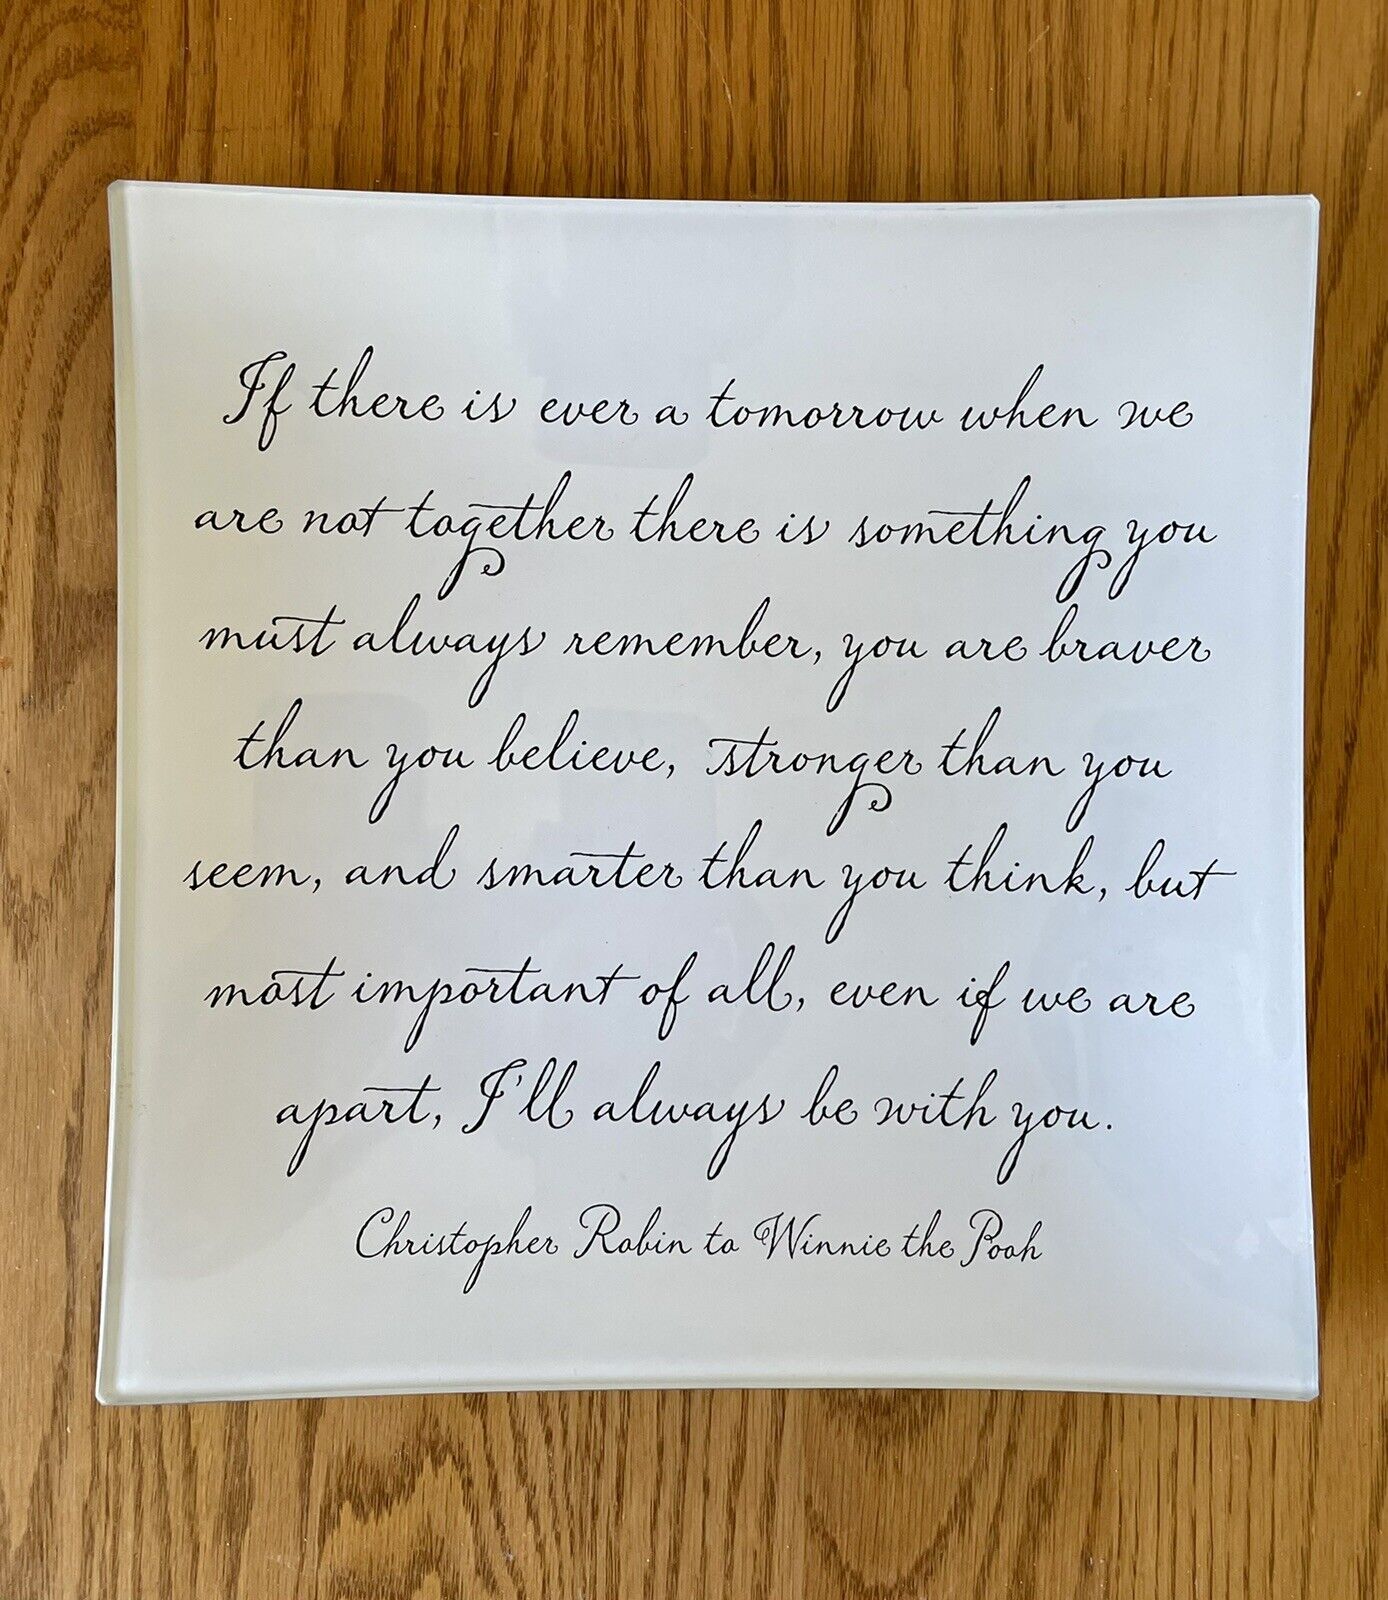 If there is ever a tomorrow when we
are not together there is something you
must always remember, you are braver
than you believe, stronger than you
seem, and smarter than you think, but
most important of all, even if we are
apart, I'll always be with you.
Christopher Robin to Winnie the Pooh